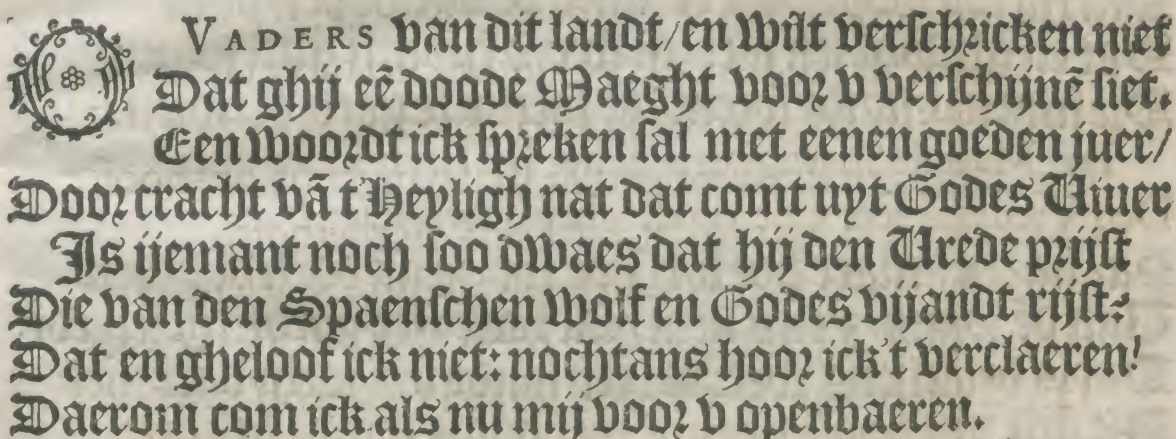 O VADERS van dit landt/en wilt verschricken niet
Dat ghij eē doode Maeght voor v verschijnē siet.
Een woordt ick spreken sal met eenen goeden juer/
Door cracht vā t Heyligh nat dat comt uyt Godes Viuer
Is ijemant noch soo dwaes dat hij den Vrede prijst
Die van den Spaenschen wolf en Godes vijandt rijst:
Dat en gheloof ick niet: nochtans hoor ick't verclaeren!
Daerom com ick als nu mij voor v openbaeren.